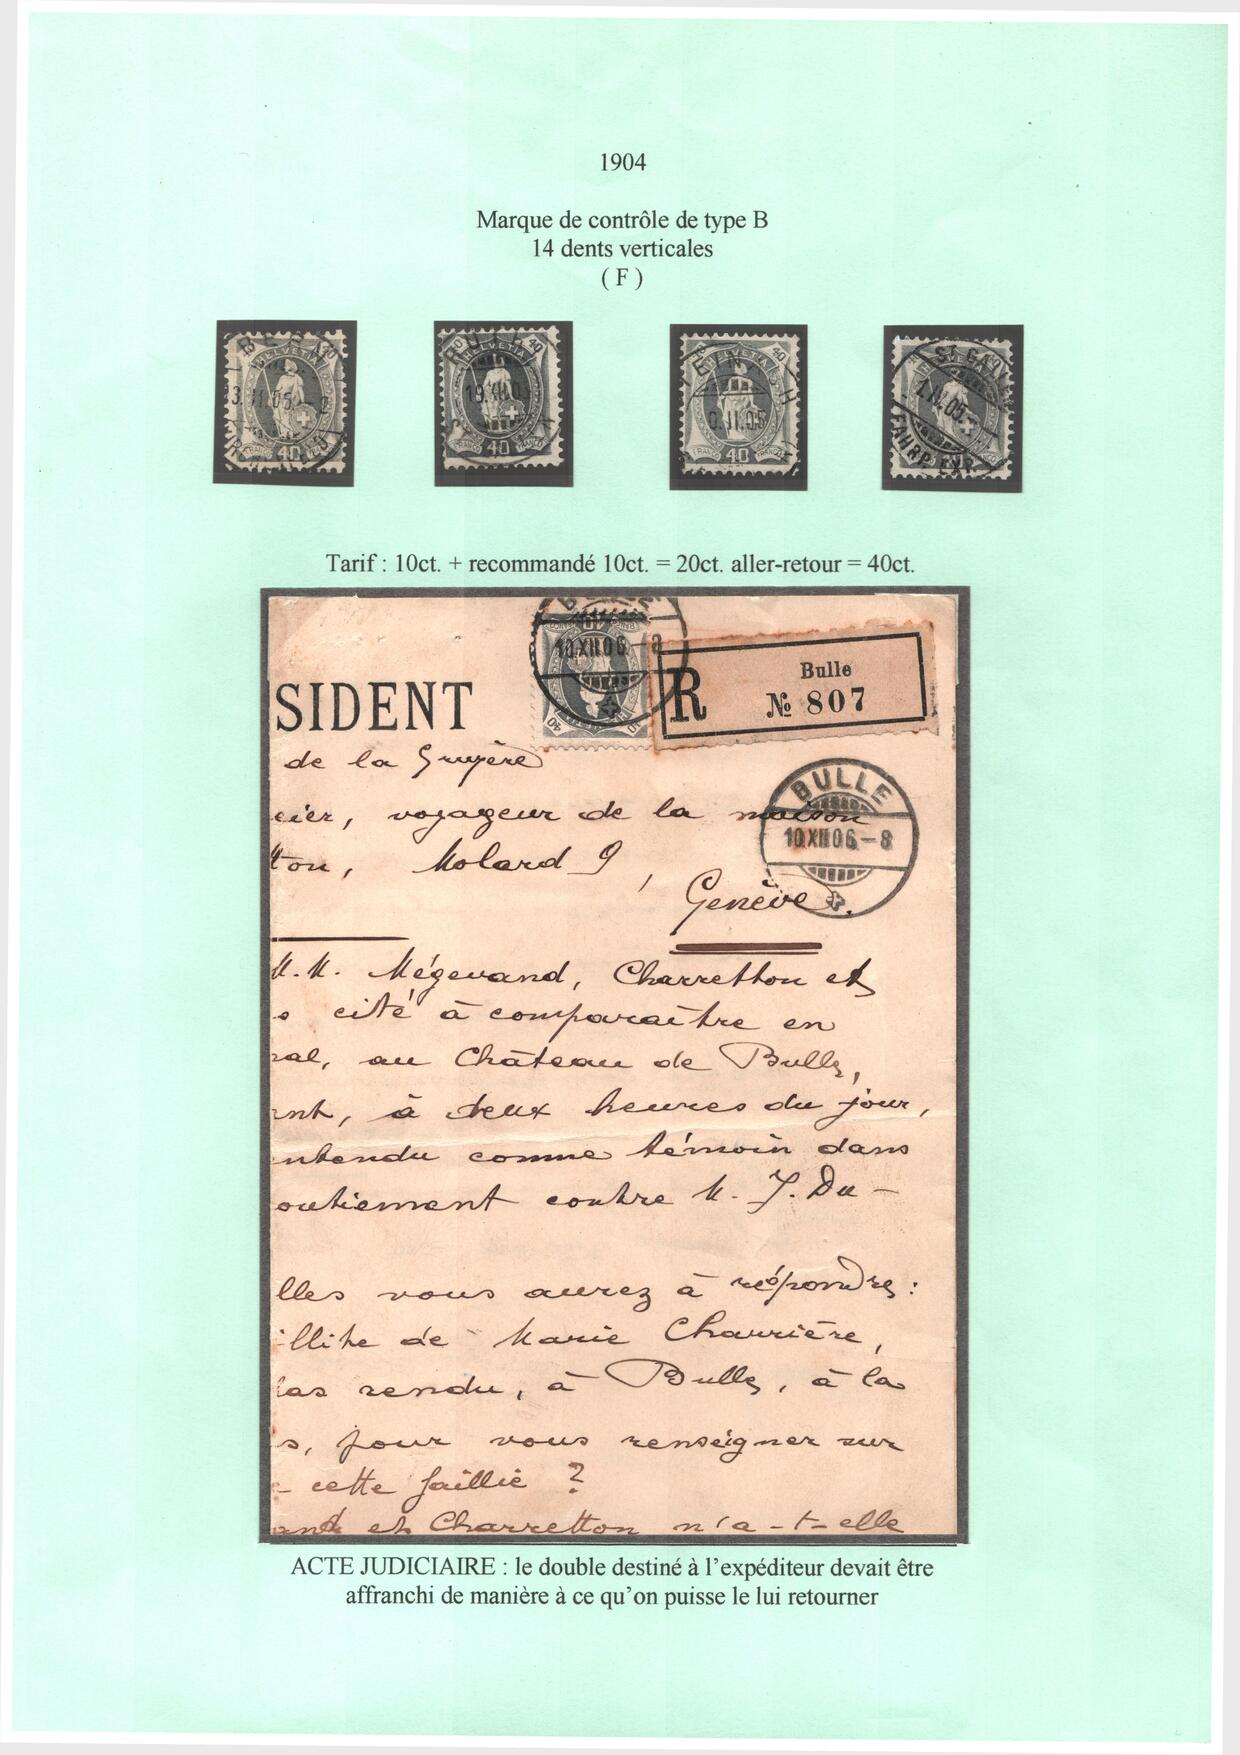 1904
Marque de contrôle de type B
14 dents verticales
( F )
BERN
HELVETIA
40
FRANCO
HELVETIA
40
19.XII.0
40
FRANCO
HELVETIA
40
.II.05
40
FRANCO
ST. GALL
1.IV.05.
FAHRP. EXP.
Tarif : 10ct. + recommandé 10ct. = 20ct. aller-retour = 40ct.
10.XII.06.-8
40
R
Bulle
№ 807
SIDENT
de la Gruyère
cier, voyageur de la maison
ton, Molard 9,
Genève.
BULLE
10.XII.06.-8
M.M. Mégevand, Charretton et
cité à comparaître en
al, au Château de Bulle,
ent, à deux heures du jour,
ntendu comme témoin dans
outiement contre M. J. Du-
lles vous aurez à répondre :
llite de Marie Charrière,
as rendu, à Bulle, à la
s, pour vous renseigner sur
cette faillie ?
and et Charretton n'a-t-elle
ACTE JUDICIAIRE : le double destiné à l'expéditeur devait être
affranchi de manière à ce qu'on puisse le lui retourner